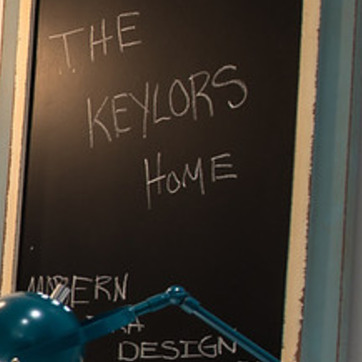 THE
KEYLORS
HOME
MODERN
DESIGN